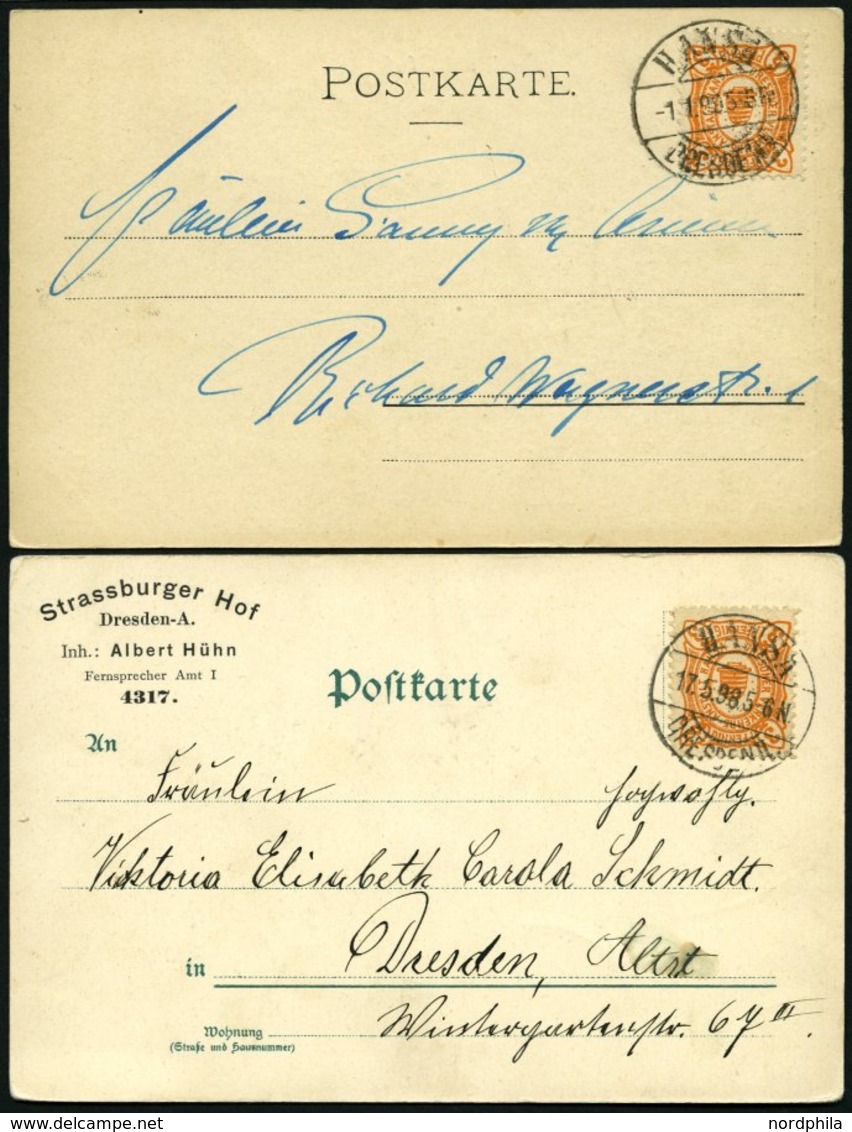 POSTKARTE.
HANSA
-1.1.98 5-6N
DRESDEN
Fräulein Fanny
Richard Wagnerstr. 1
Strassburger Hof
Dresden-A.
Inh.: Albert Hühn
Fernsprecher Amt I
4317.
Postkarte
HANSA
17.5.98 5-6N
DRESDEN
An
Fräulein hochwohlg.
Viktoria Elisabeth Carola Schmidt.
in Dresden, Altst
Wohnung Wintergartenstr. 67 III.
(Straße und Hausnummer)
nordphila